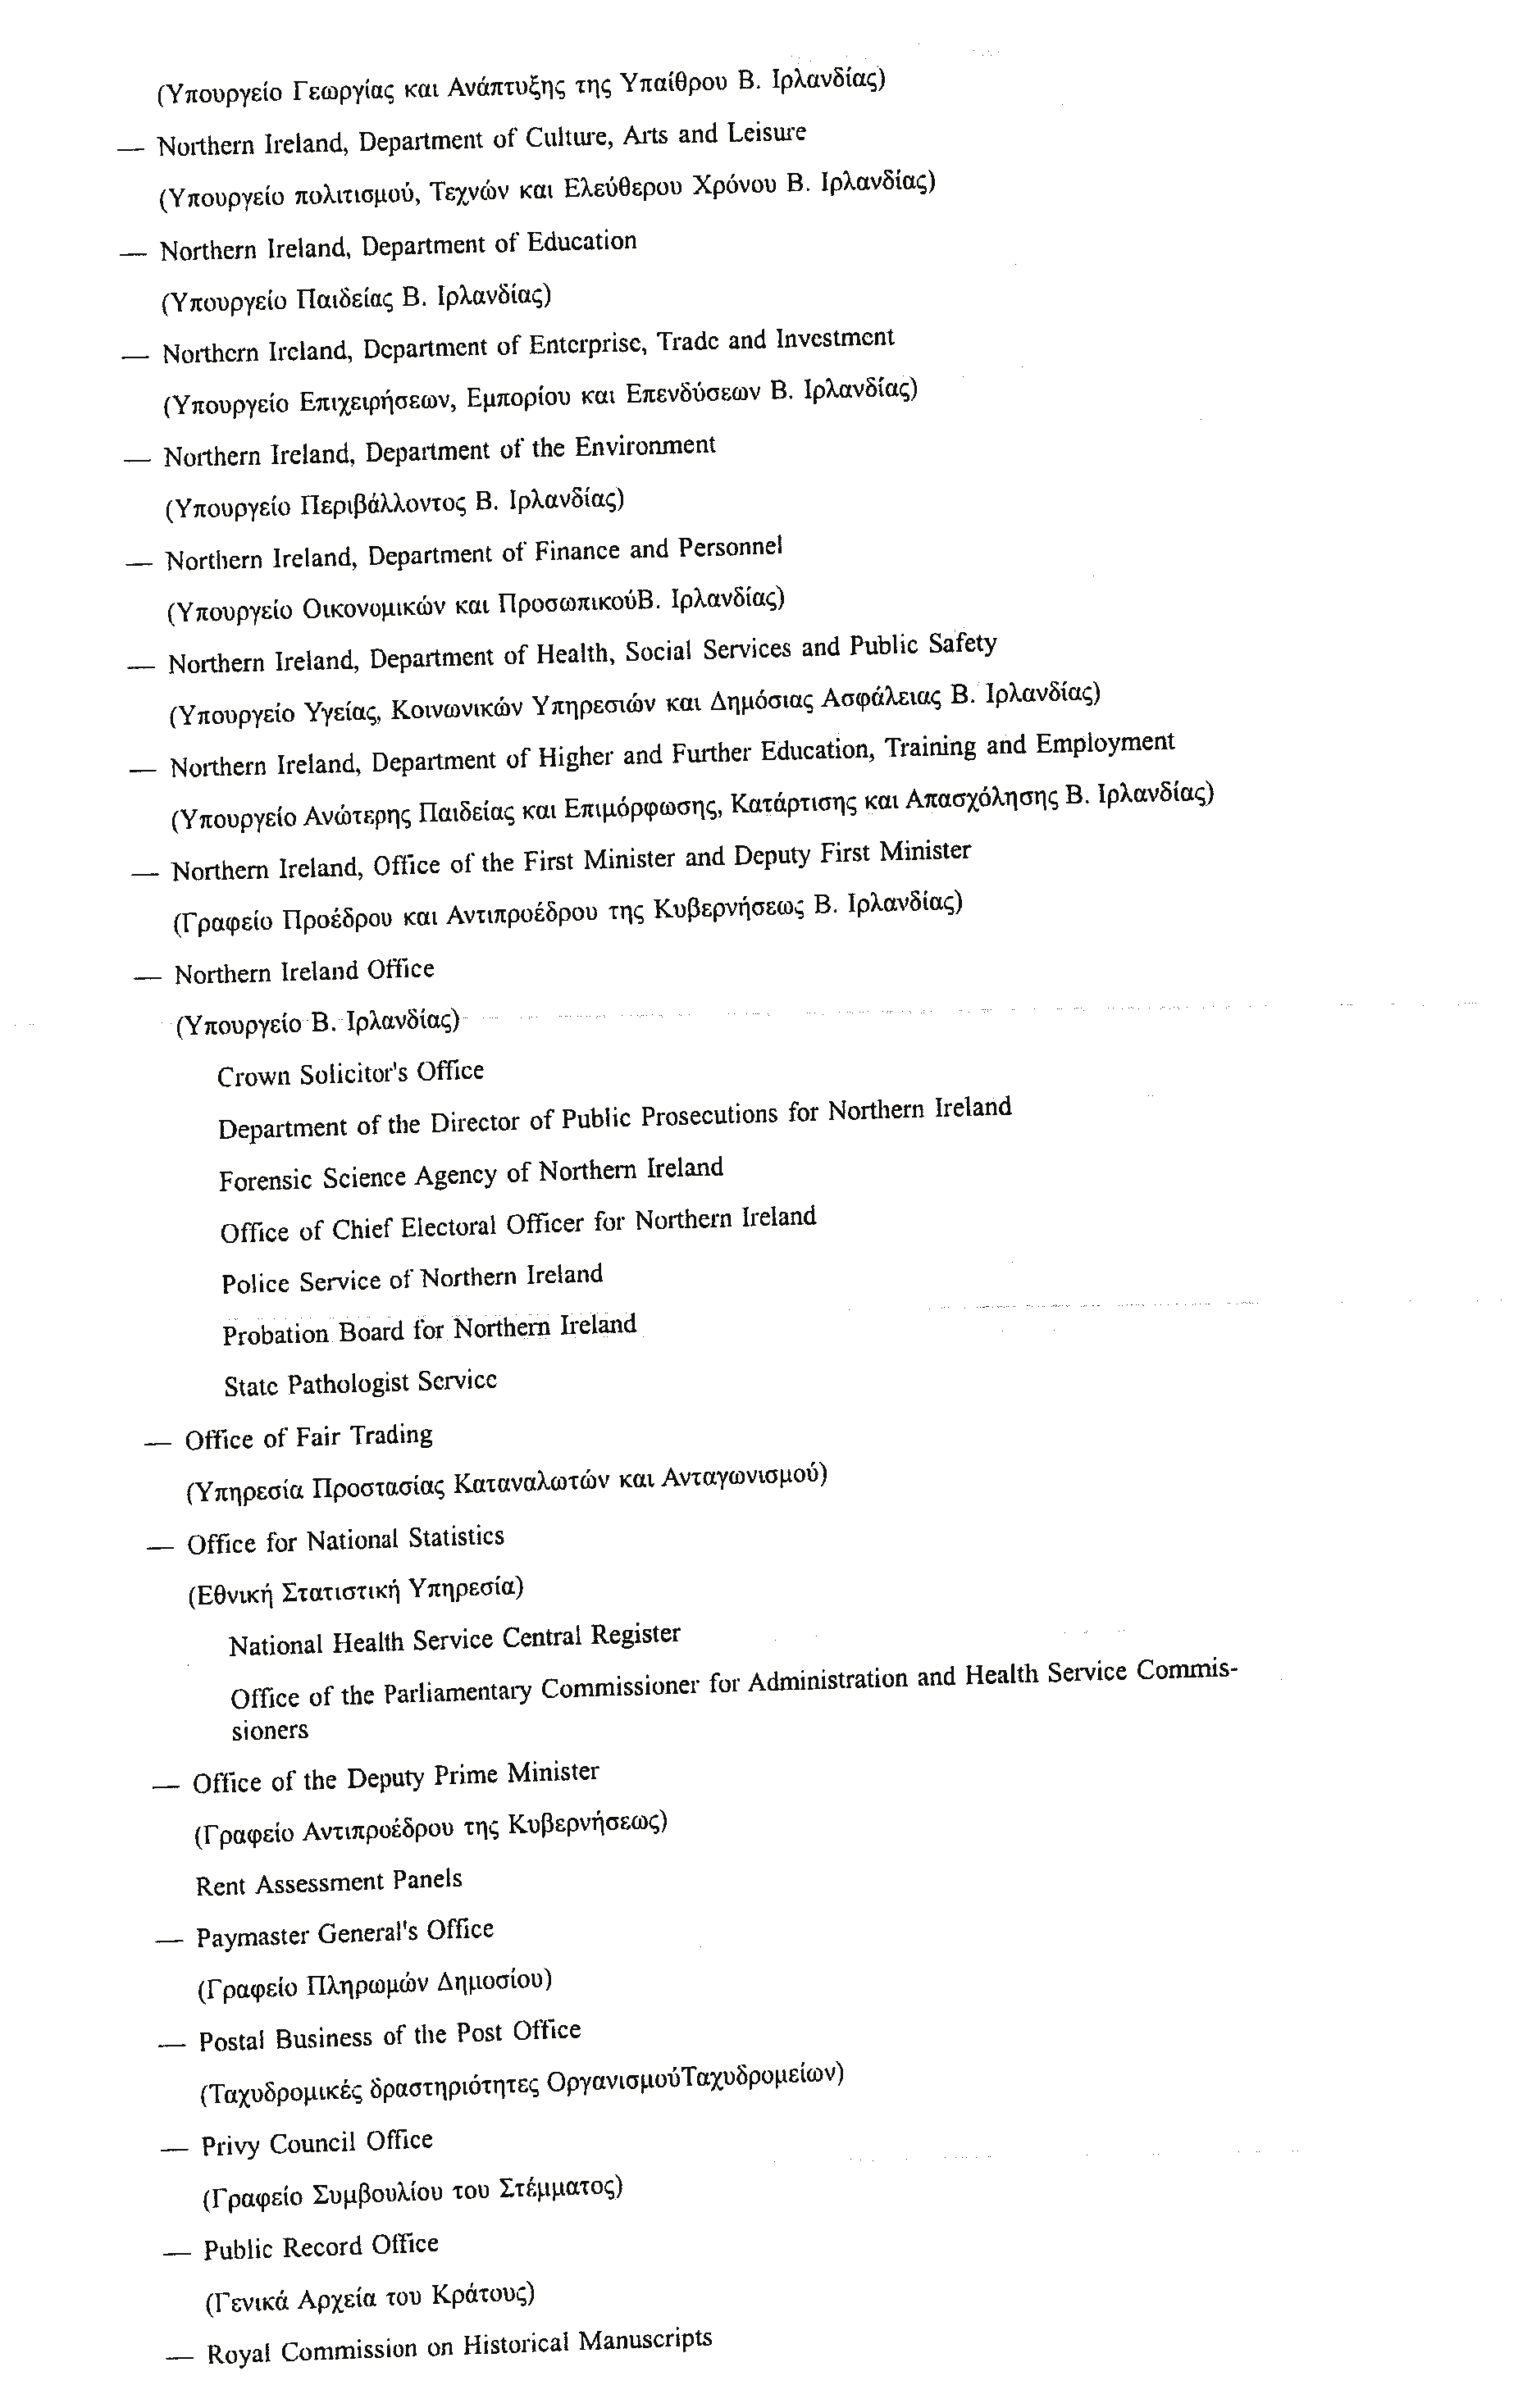 (Υπουργείο Γεωργίας και Ανάπτυξης της Υπαίθρου Β. Ιρλανδίας)
— Northern Ireland, Department of Culture, Arts and Leisure
(Υπουργείο πολιτισμού, Τεχνών και Ελεύθερου Χρόνου Β. Ιρλανδίας)
— Northern Ireland, Department of Education
(Υπουργείο Παιδείας Β. Ιρλανδίας)
— Northern Ireland, Department of Enterprise, Trade and Investment
(Υπουργείο Επιχειρήσεων, Εμπορίου και Επενδύσεων Β. Ιρλανδίας)
— Northern Ireland, Department of the Environment
(Υπουργείο Περιβάλλοντος Β. Ιρλανδίας)
— Northern Ireland, Department of Finance and Personnel
(Υπουργείο Οικονομικών και ΠροσωπικούΒ. Ιρλανδίας)
— Northern Ireland, Department of Health, Social Services and Public Safety
(Υπουργείο Υγείας, Κοινωνικών Υπηρεσιών και Δημόσιας Ασφάλειας Β. Ιρλανδίας)
— Northern Ireland, Department of Higher and Further Education, Training and Employment
(Υπουργείο Ανώτερης Παιδείας και Επιμόρφωσης, Κατάρτισης και Απασχόλησης Β. Ιρλανδίας)
— Northern Ireland, Office of the First Minister and Deputy First Minister
(Γραφείο Προέδρου και Αντιπροέδρου της Κυβερνήσεως Β. Ιρλανδίας)
— Northern Ireland Office
(Υπουργείο Β. Ιρλανδίας)
Crown Solicitor's Office
Department of the Director of Public Prosecutions for Northern Ireland
Forensic Science Agency of Northern Ireland
Office of Chief Electoral Officer for Northern Ireland
Police Service of Northern Ireland
Probation Board for Northern Ireland
State Pathologist Service
— Office of Fair Trading
(Υπηρεσία Προστασίας Καταναλωτών και Ανταγωνισμού)
— Office for National Statistics
(Εθνική Στατιστική Υπηρεσία)
National Health Service Central Register
Office of the Parliamentary Commissioner for Administration and Health Service Commis-
sioners
— Office of the Deputy Prime Minister
(Γραφείο Αντιπροέδρου της Κυβερνήσεως)
Rent Assessment Panels
— Paymaster General's Office
(Γραφείο Πληρωμών Δημοσίου)
— Postal Business of the Post Office
(Ταχυδρομικές δραστηριότητες ΟργανισμούΤαχυδρομείων)
— Privy Council Office
(Γραφείο Συμβουλίου του Στέμματος)
— Public Record Office
(Γενικά Αρχεία του Κράτους)
— Royal Commission on Historical Manuscripts